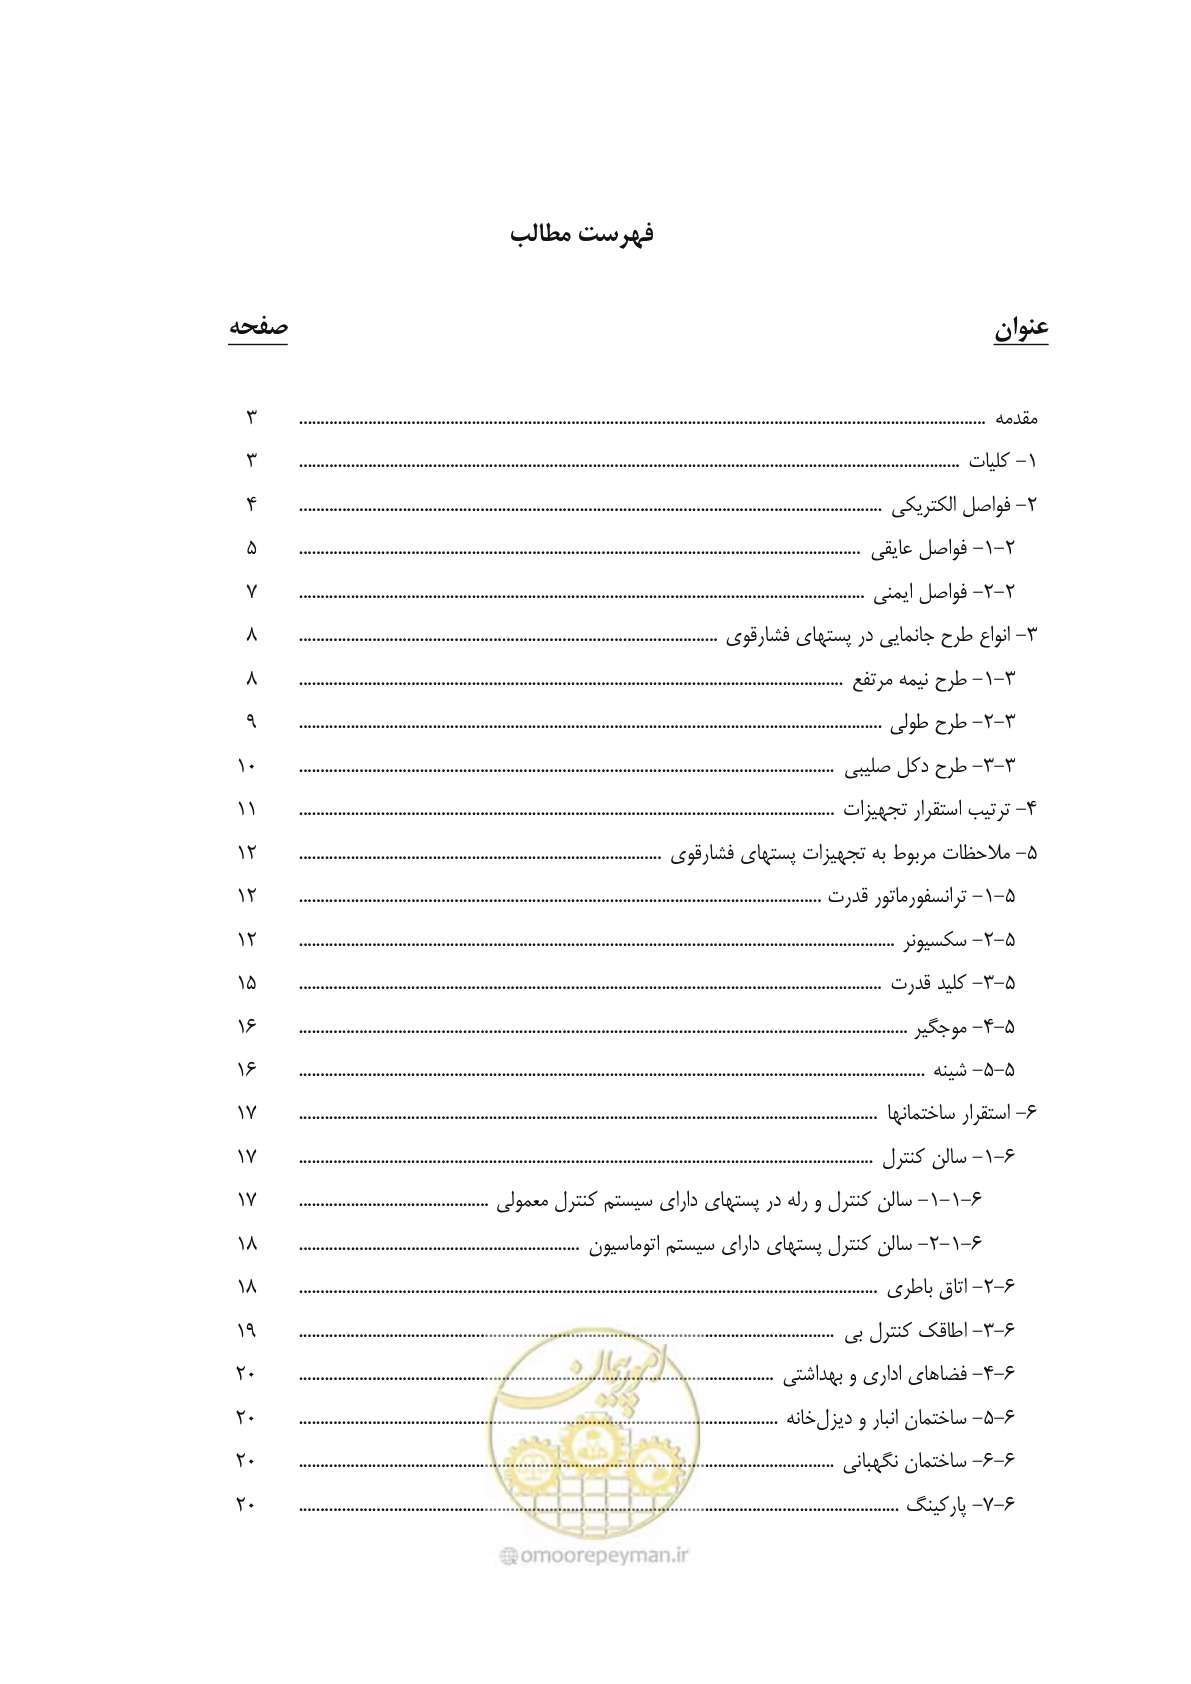 فهرست مطالب
عنوان صفحه
مقدمه ........ ۳
۱- کلیات ........ ۳
۲- فواصل الکتریکی ........ ۴
۲-۱- فواصل عایقی ........ ۵
۲-۲- فواصل ایمنی ........ ۷
۳- انواع طرح جانمایی در پستهای فشارقوی ........ ۸
۳-۱- طرح نیمه مرتفع ........ ۸
۳-۲- طرح طولی ........ ۹
۳-۳- طرح دکل صلیبی ........ ۱۰
۴- ترتیب استقرار تجهیزات ........ ۱۱
۵- ملاحظات مربوط به تجهیزات پستهای فشارقوی ........ ۱۲
۵-۱- ترانسفورماتور قدرت ........ ۱۲
۵-۲- سکسیونر ........ ۱۲
۵-۳- کلید قدرت ........ ۱۵
۵-۴- موجگیر ........ ۱۶
۵-۵- شینه ........ ۱۶
۶- استقرار ساختمانها ........ ۱۷
۶-۱- سالن کنترل ........ ۱۷
۶-۱-۱- سالن کنترل و رله در پستهای دارای سیستم کنترل معمولی ........ ۱۷
۶-۱-۲- سالن کنترل پستهای دارای سیستم اتوماسیون ........ ۱۸
۶-۲- اتاق باطری ........ ۱۸
۶-۳- اطاقک کنترل بی ........ ۱۹
۶-۴- فضاهای اداری و بهداشتی ........ ۲۰
۶-۵- ساختمان انبار و دیزل‌خانه ........ ۲۰
۶-۶- ساختمان نگهبانی ........ ۲۰
۶-۷- پارکینگ ........ ۲۰
امور پیمان
omoorepeyman.ir